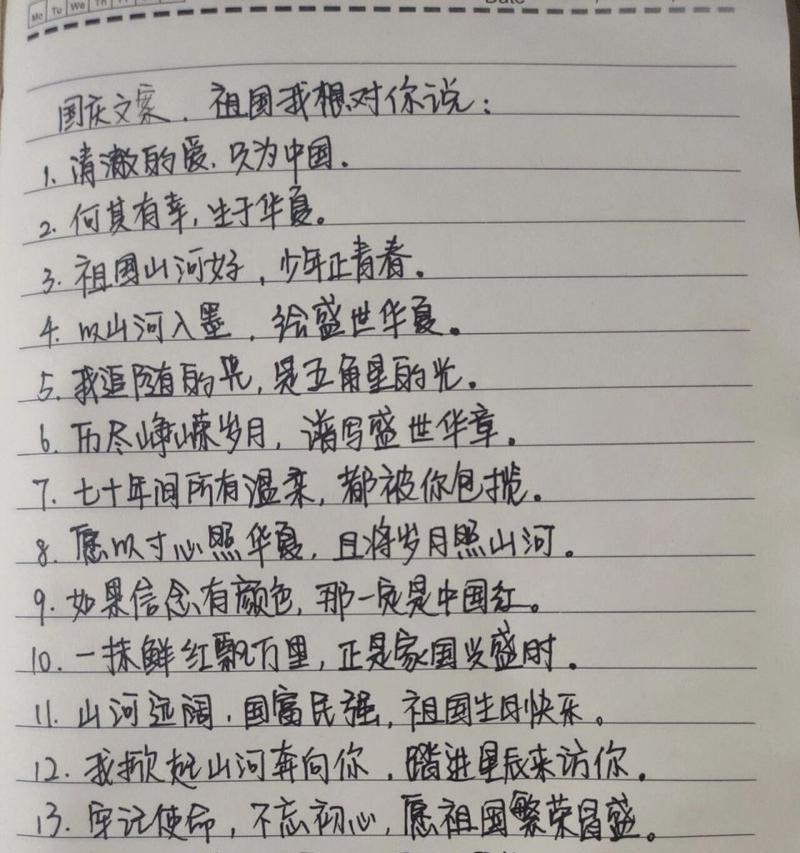 Mo Tu We Th Fr
Date
国庆文案. 祖国我想对你说:
1. 清澈的爱.只为中国.
2. 何其有幸,生于华夏。
3. 祖国山河好,少年正青春。
4. 以山河入墨,绘盛世华夏。
5. 我追随的光,是五角星的光。
6. 历尽峥嵘岁月,谱写盛世华章。
7. 七十年间所有温柔,都被你包揽。
8. 愿以寸心照华夏,且将岁月照山河。
9. 如果信念有颜色,那一定是中国红。
10. 一抹鲜红飘万里,正是家国兴盛时.
11. 山河远阔.国富民强,祖国生日快乐。
12. 我掀起山河奔向你,踏进星辰来访你.
13. 牢记使命,不忘初心,愿祖国繁荣昌盛。